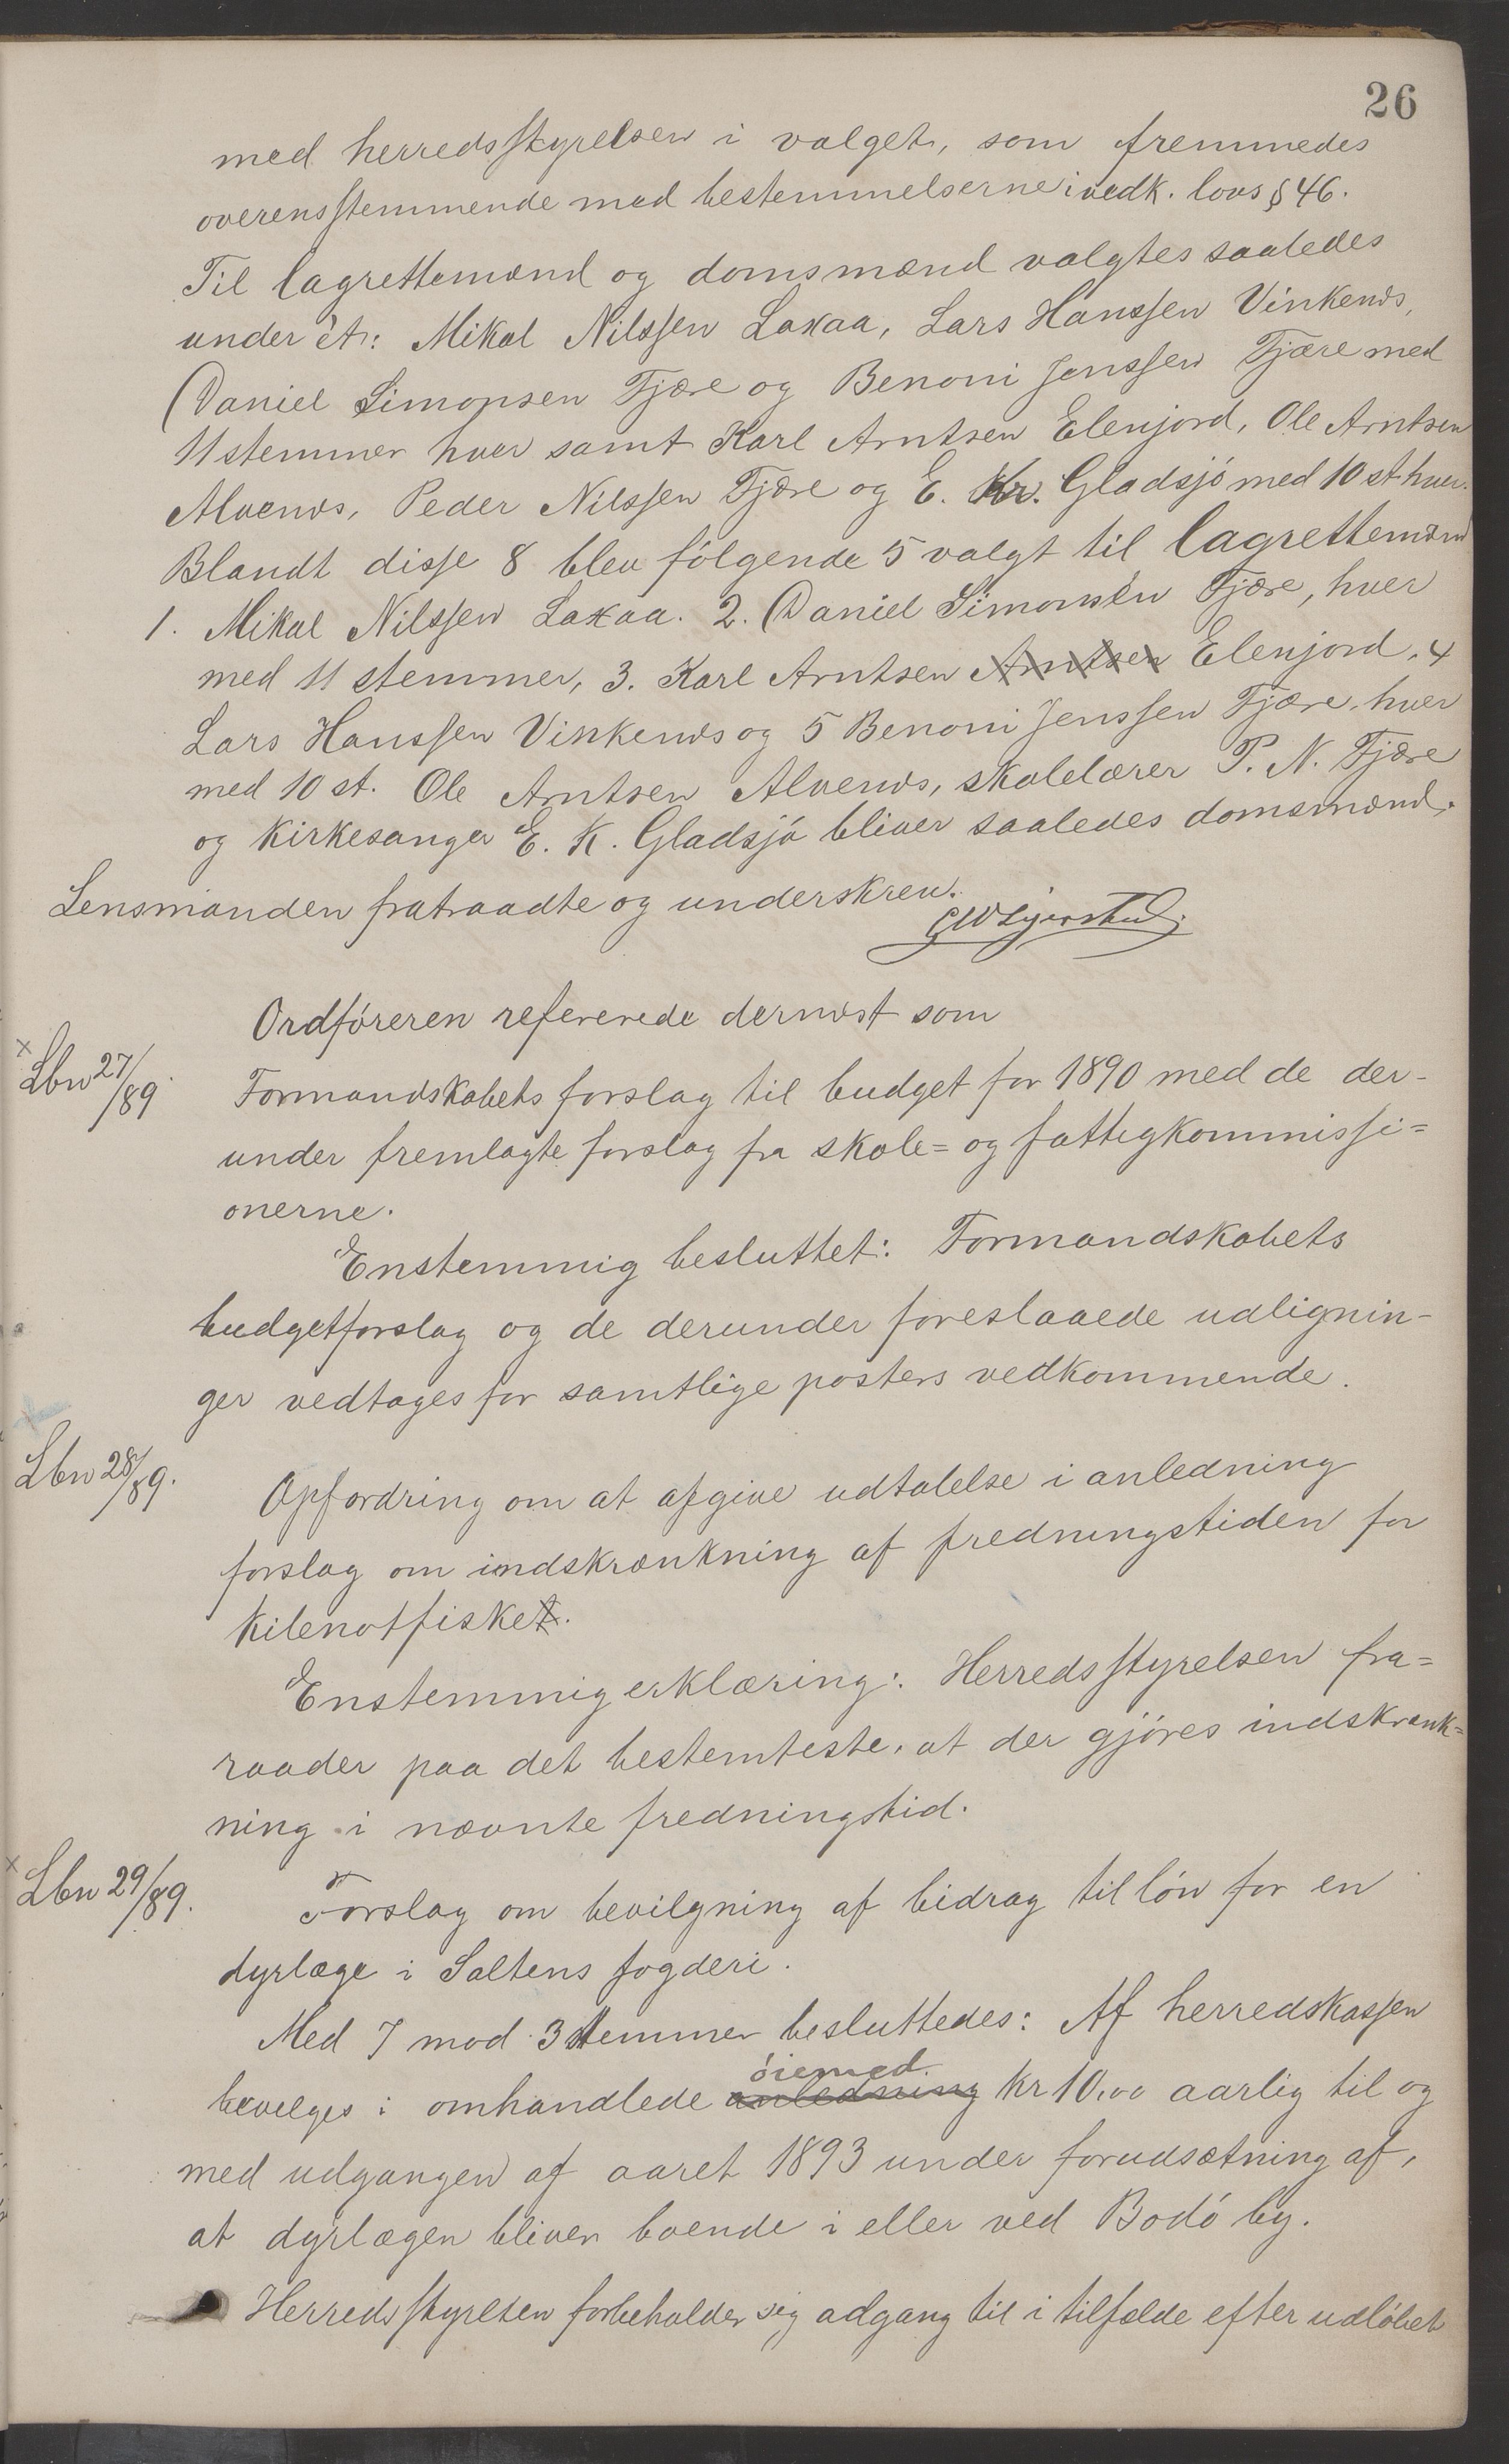 26
med herredsstyrelsen i valget, som fremmedes
overensstemmende med bestemmelserne i vedk. lovs § 46.
Til lagrettemænd og domsmænd valgtes saaledes
under ét: Mikal Nilssen Laxaa, Lars Hanssen Vinkenæs,
Daniel Simonsen Fjære og Benoni Jenssen Fjære med
11 stemmer hver samt Karl Arntsen Elenjord, Ole Arntsen
Alvenæs, Peder Nilssen Fjære og E. Kr. Gladsjö med 10 st. hver.
Blandt disse 8 blev fölgende 5 valgt til lagrettemænd
1. Mikal Nilssen Laxaa. 2. Daniel Simonsen Fjære, hver
med 11 stemmer, 3. Karl Arntsen Arntsen Elenjord, 4
Lars Hanssen Vinkenæs og 5 Benoni Jenssen Fjære, hver
med 10 st. Ole Arntsen Alvenæs, skolelærer P. N. Fjære
og kirkesanger E. K. Gladsjö bliver saaledes domsmænd.
Lensmanden fratraadte og underskrev.
Ordföreren refererede dernæst som
Lbn 27/89
Formandskabets forslag til budget for 1890 med de der-
under fremlagte forslag fra skole= og fattigkommissi=
onerne.
Enstemmig besluttet: Formandskabets
budgetforslag og de derunder foreslaaede udlignin-
ger vedtages for samtlige posters vedkommende.
Lbn 28/89.
Opfordring om at afgive udtalelse i anledning
forslag om indskrænkning af fredningstiden for
kilenotfisket.
Enstemmig erklæring: Herredsstyrelsen fra=
raader paa det bestemteste, at der gjöres indskrænk=
ning i nævnte fredningstid.
Lbn 29/89.
Forslag om bevilgning af bidrag til lön for en
dyrlæge i Saltens fogderi.
Med 7 mod 3 stemmer besluttedes: Af herredskassen
öiemed.
bevilges i omhandlede anledning kr 10,00 aarlig til og
med udgangen af aaret 1893 under forudsætning af,
at dyrlægen bliver boende i eller ved Bodö by.
Herredsstyrelsen forbeholder sig adgang til i tilfælde efter udlöbet